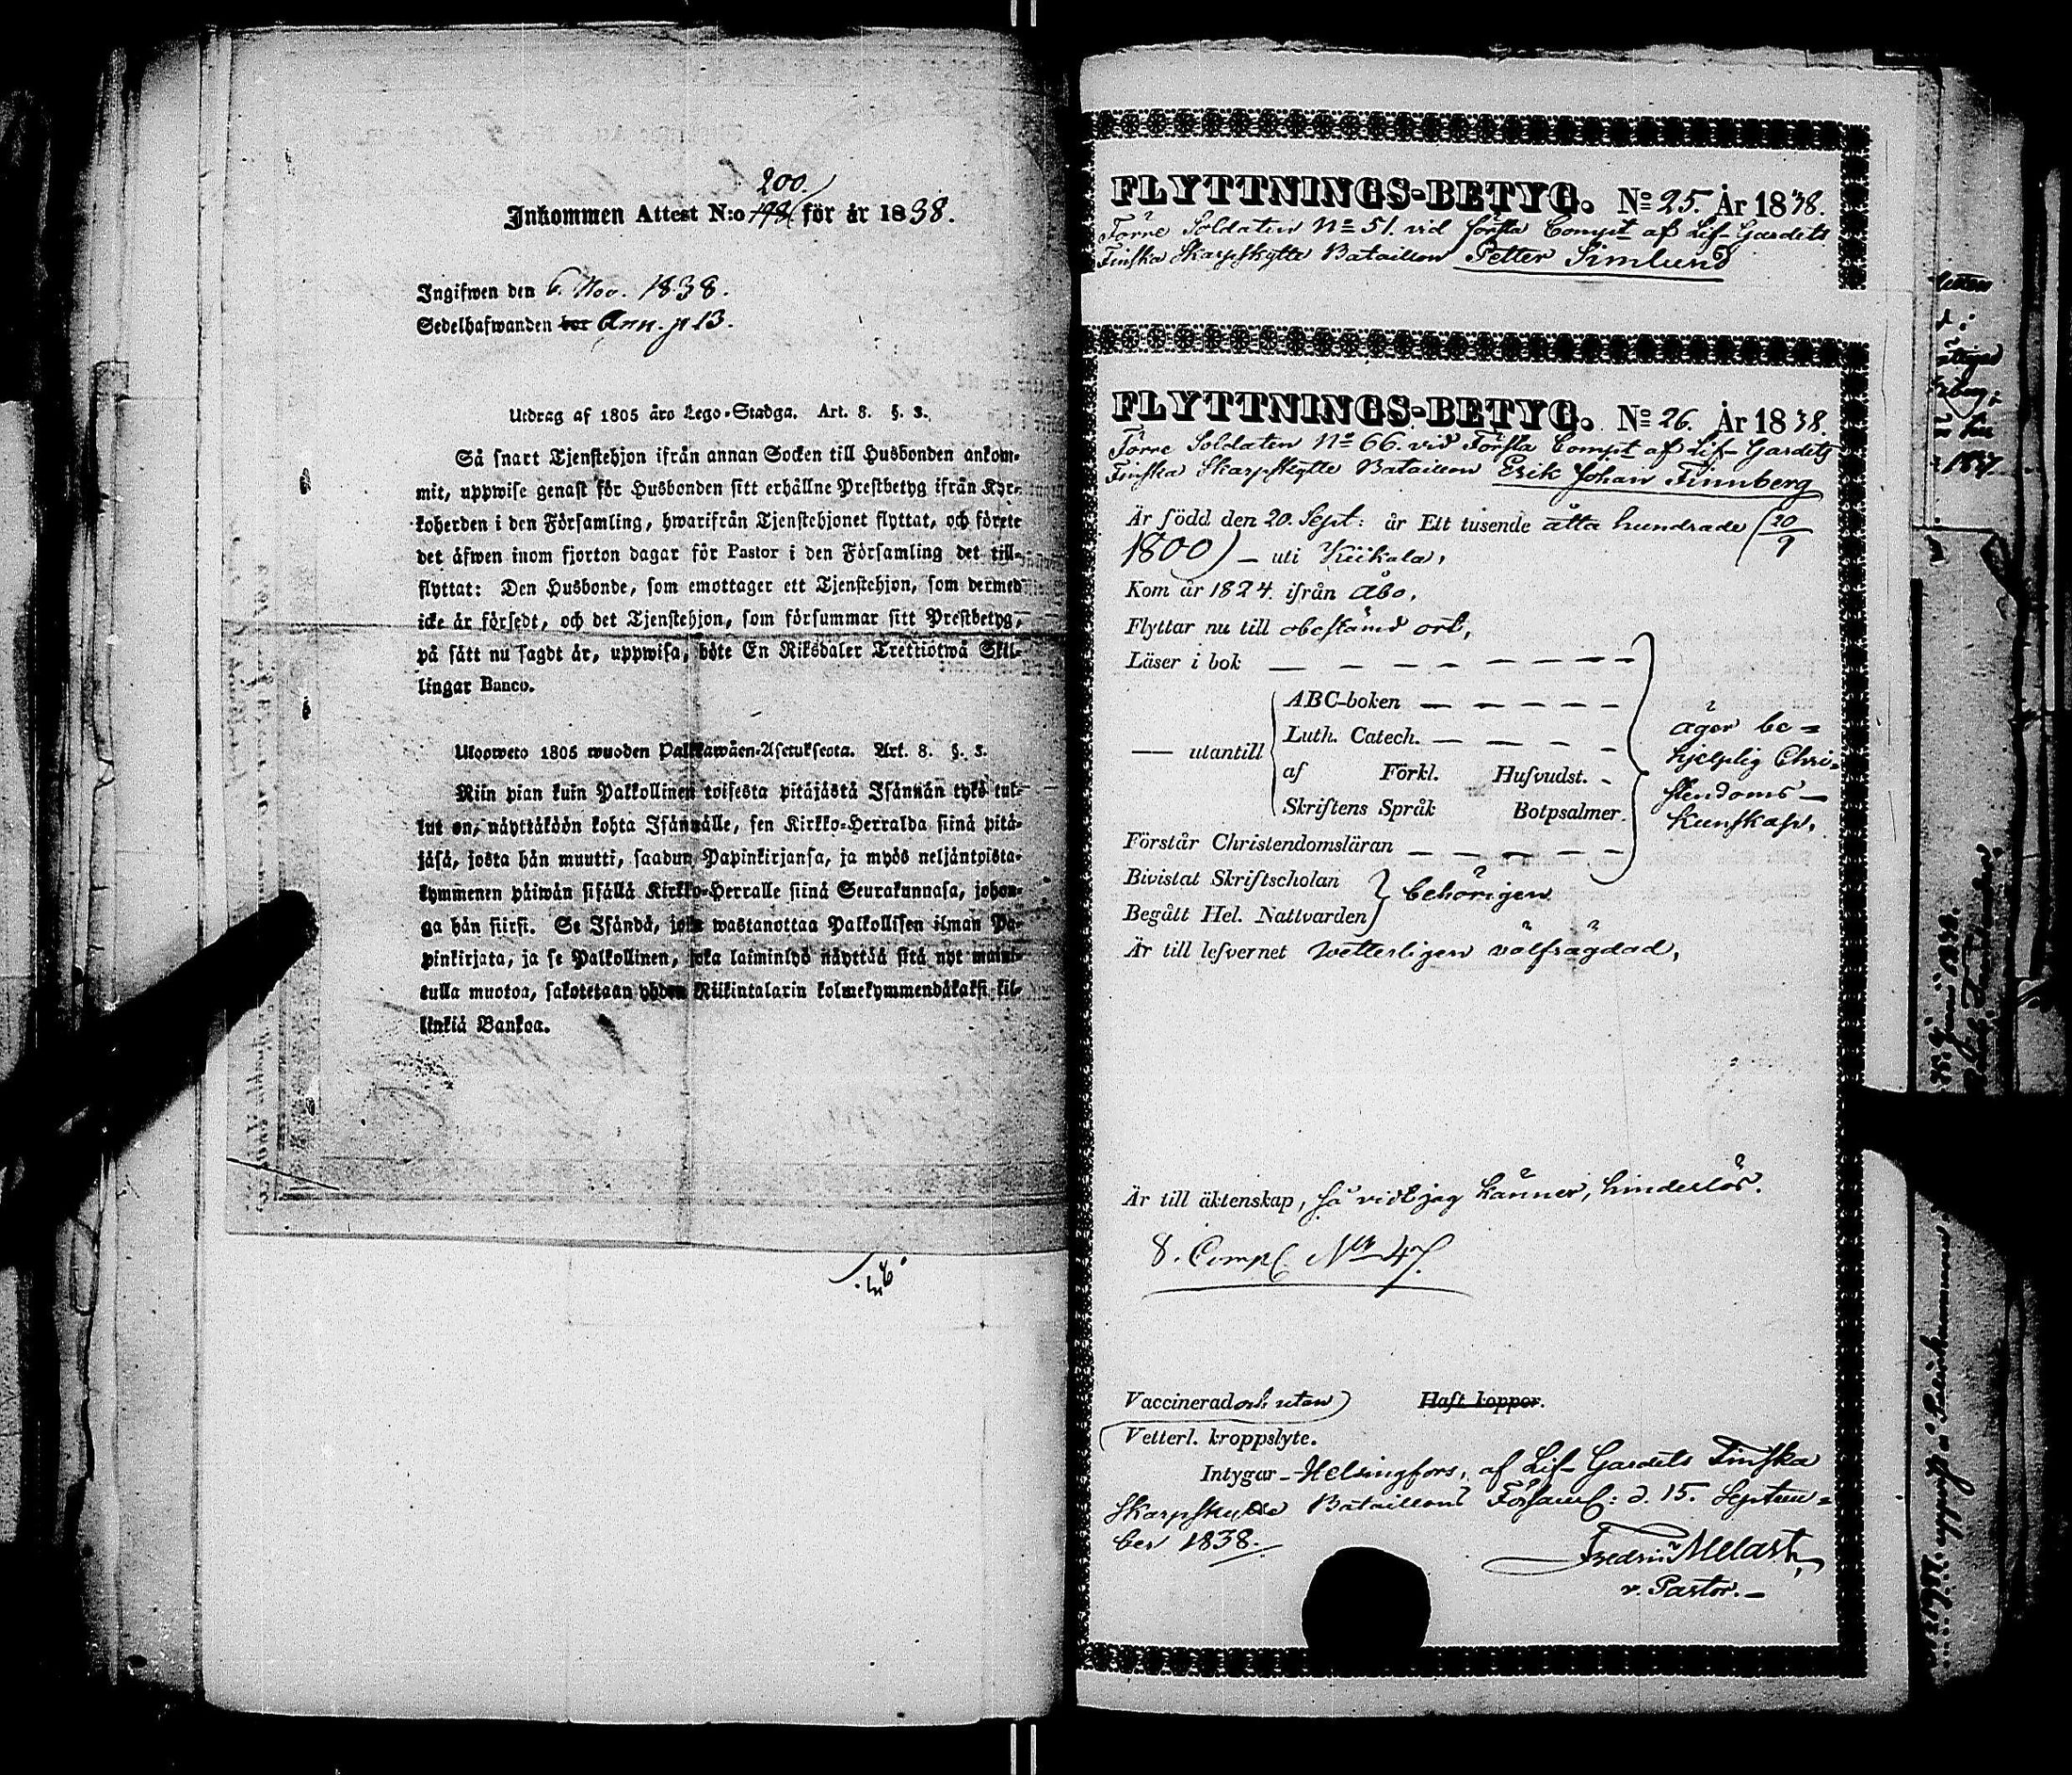 200.
Inkommen Attest N:o 198 för år 1838.
Ingifwen den 6. Nov. 1838.
Sedelhafwanden bor Ann. p 13.
Utdrag af 1805 års Lego-Stadga. Art. 8. §. 3.
Så snart Tjenstehjon ifrån annan Socken till Husbonden ankom-
mit, uppwise genast för Husbonden sitt erhållne Prestbetyg ifrån Kyr-
koherden i den Församling, hwarifrån Tjenstehjonet flyttat, och förete
det äfwen inom fjorton dagar för Pastor i den Församling det till-
flyttat: Den Husbonde, som emottager ett Tjenstehjon, som dermed
icke är försedt, och det Tjenstehjon, som försummar sitt Prestbetyg,
på sätt nu sagdt är, uppwisa, böte En Riksdaler Trettiotwå Skil-
lingar Banco.
Ulosweto 1805 wuoden Palkkawäen-Asetuksesta. Art. 8. §. 3.
Niin pian kuin Palkollinen toisesta pitäjästä Isännän tykö tul-
lut on, näyttäköön kohta Isännälle, sen Kirkko-Herralda siinä pitä-
jäsä, josta hän muutti, saadun Papinkirjansa, ja myös neljäntoista-
kymmenen päiwän sisällä Kirkko-Herralle siinä Seurakunnasa, johon-
ga hän siirsi. Se Isändä, joka wastanottaa Palkollisen ilman Pa-
pinkirjata, ja se Palkollinen, joka laiminlyö näyttää sitä nyt maini-
tulla muotoa, sakotetaan yhden Riikintalarin kolmekymmendäkaksi kil-
linkiä Bankoa.
FLYTTNINGS-BETYG. No 25. År 1838.
Förre Soldaten No 51. vid första Compt af Lif-Gardets
Finska Skarpskytte Bataillon Petter Simlund
FLYTTNINGS-BETYG. No 26. År 1838.
Förre Soldaten No 66. vid Första Compt af Lif-Gardets
Finska Skarpskytte Bataillon Erik Johan Finnberg
Är född den 20. Sept: år Ett tusende åtta hundrade (20/9
1800) – uti Kiikala,
Kom år 1824. ifrån Åbo,
Flyttar nu till obestämd ort,
Läser i bok
ABC-boken
Luth. Catech.
— utantill
af Förkl. Hufvudst.
Skriftens Språk Botpsalmer.
äger be=
hjelplig Chri-
stendoms –
kunskap,
Förstår Christendomsläran
Bivistat Skriftscholan
Begått Hel. Nattvarden
behörigen
Är till lefvernet wetterligen välfrägdad,
Är till äktenskap, så vidt jag känner, hinderlös.
8. Comp. No 47.
Vaccinerad och utan Haft koppor.
Vetterl. kroppslyte.
Intygar – Helsingfors, af Lif-Gardets Finska
Skarpskytte Bataillons Församl: d. 15. Septem=
ber 1838.
Fredric Melart,
v. Pastor. –